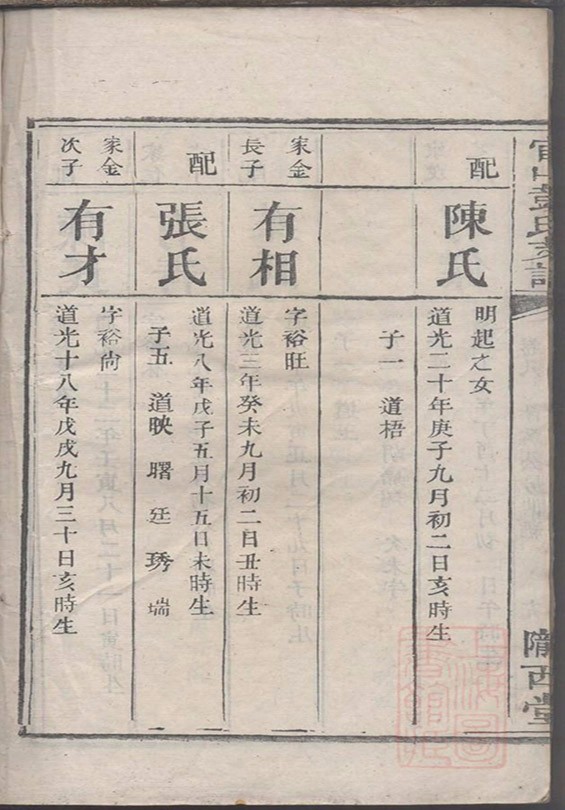 彭氏支譜
隴西堂
配
陳氏
明起之女
道光二十年庚子九月初二日亥時生
子一 道梧
家金
長子
有相
字裕旺
道光三年癸未九月初二日丑時生
配
張氏
道光八年戊子五月十五日未時生
子五 道映 曙 廷 琇 端
家金
次子
有才
字裕尚
道光十八年戊戌九月三十日亥時生